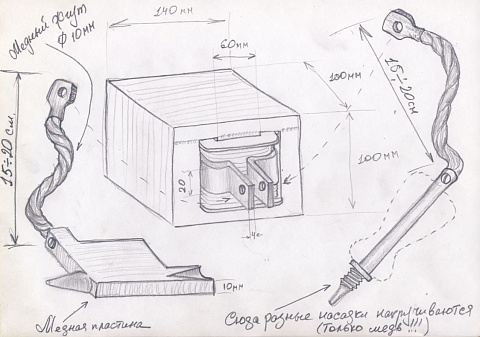 Медный жгут
Ф 10мм
140мм
60мм
100мм
15÷20см
15÷20 см.
100мм
20
10мм
Медная пластина
Сюда разные насадки накручиваются
(только медь !!!)